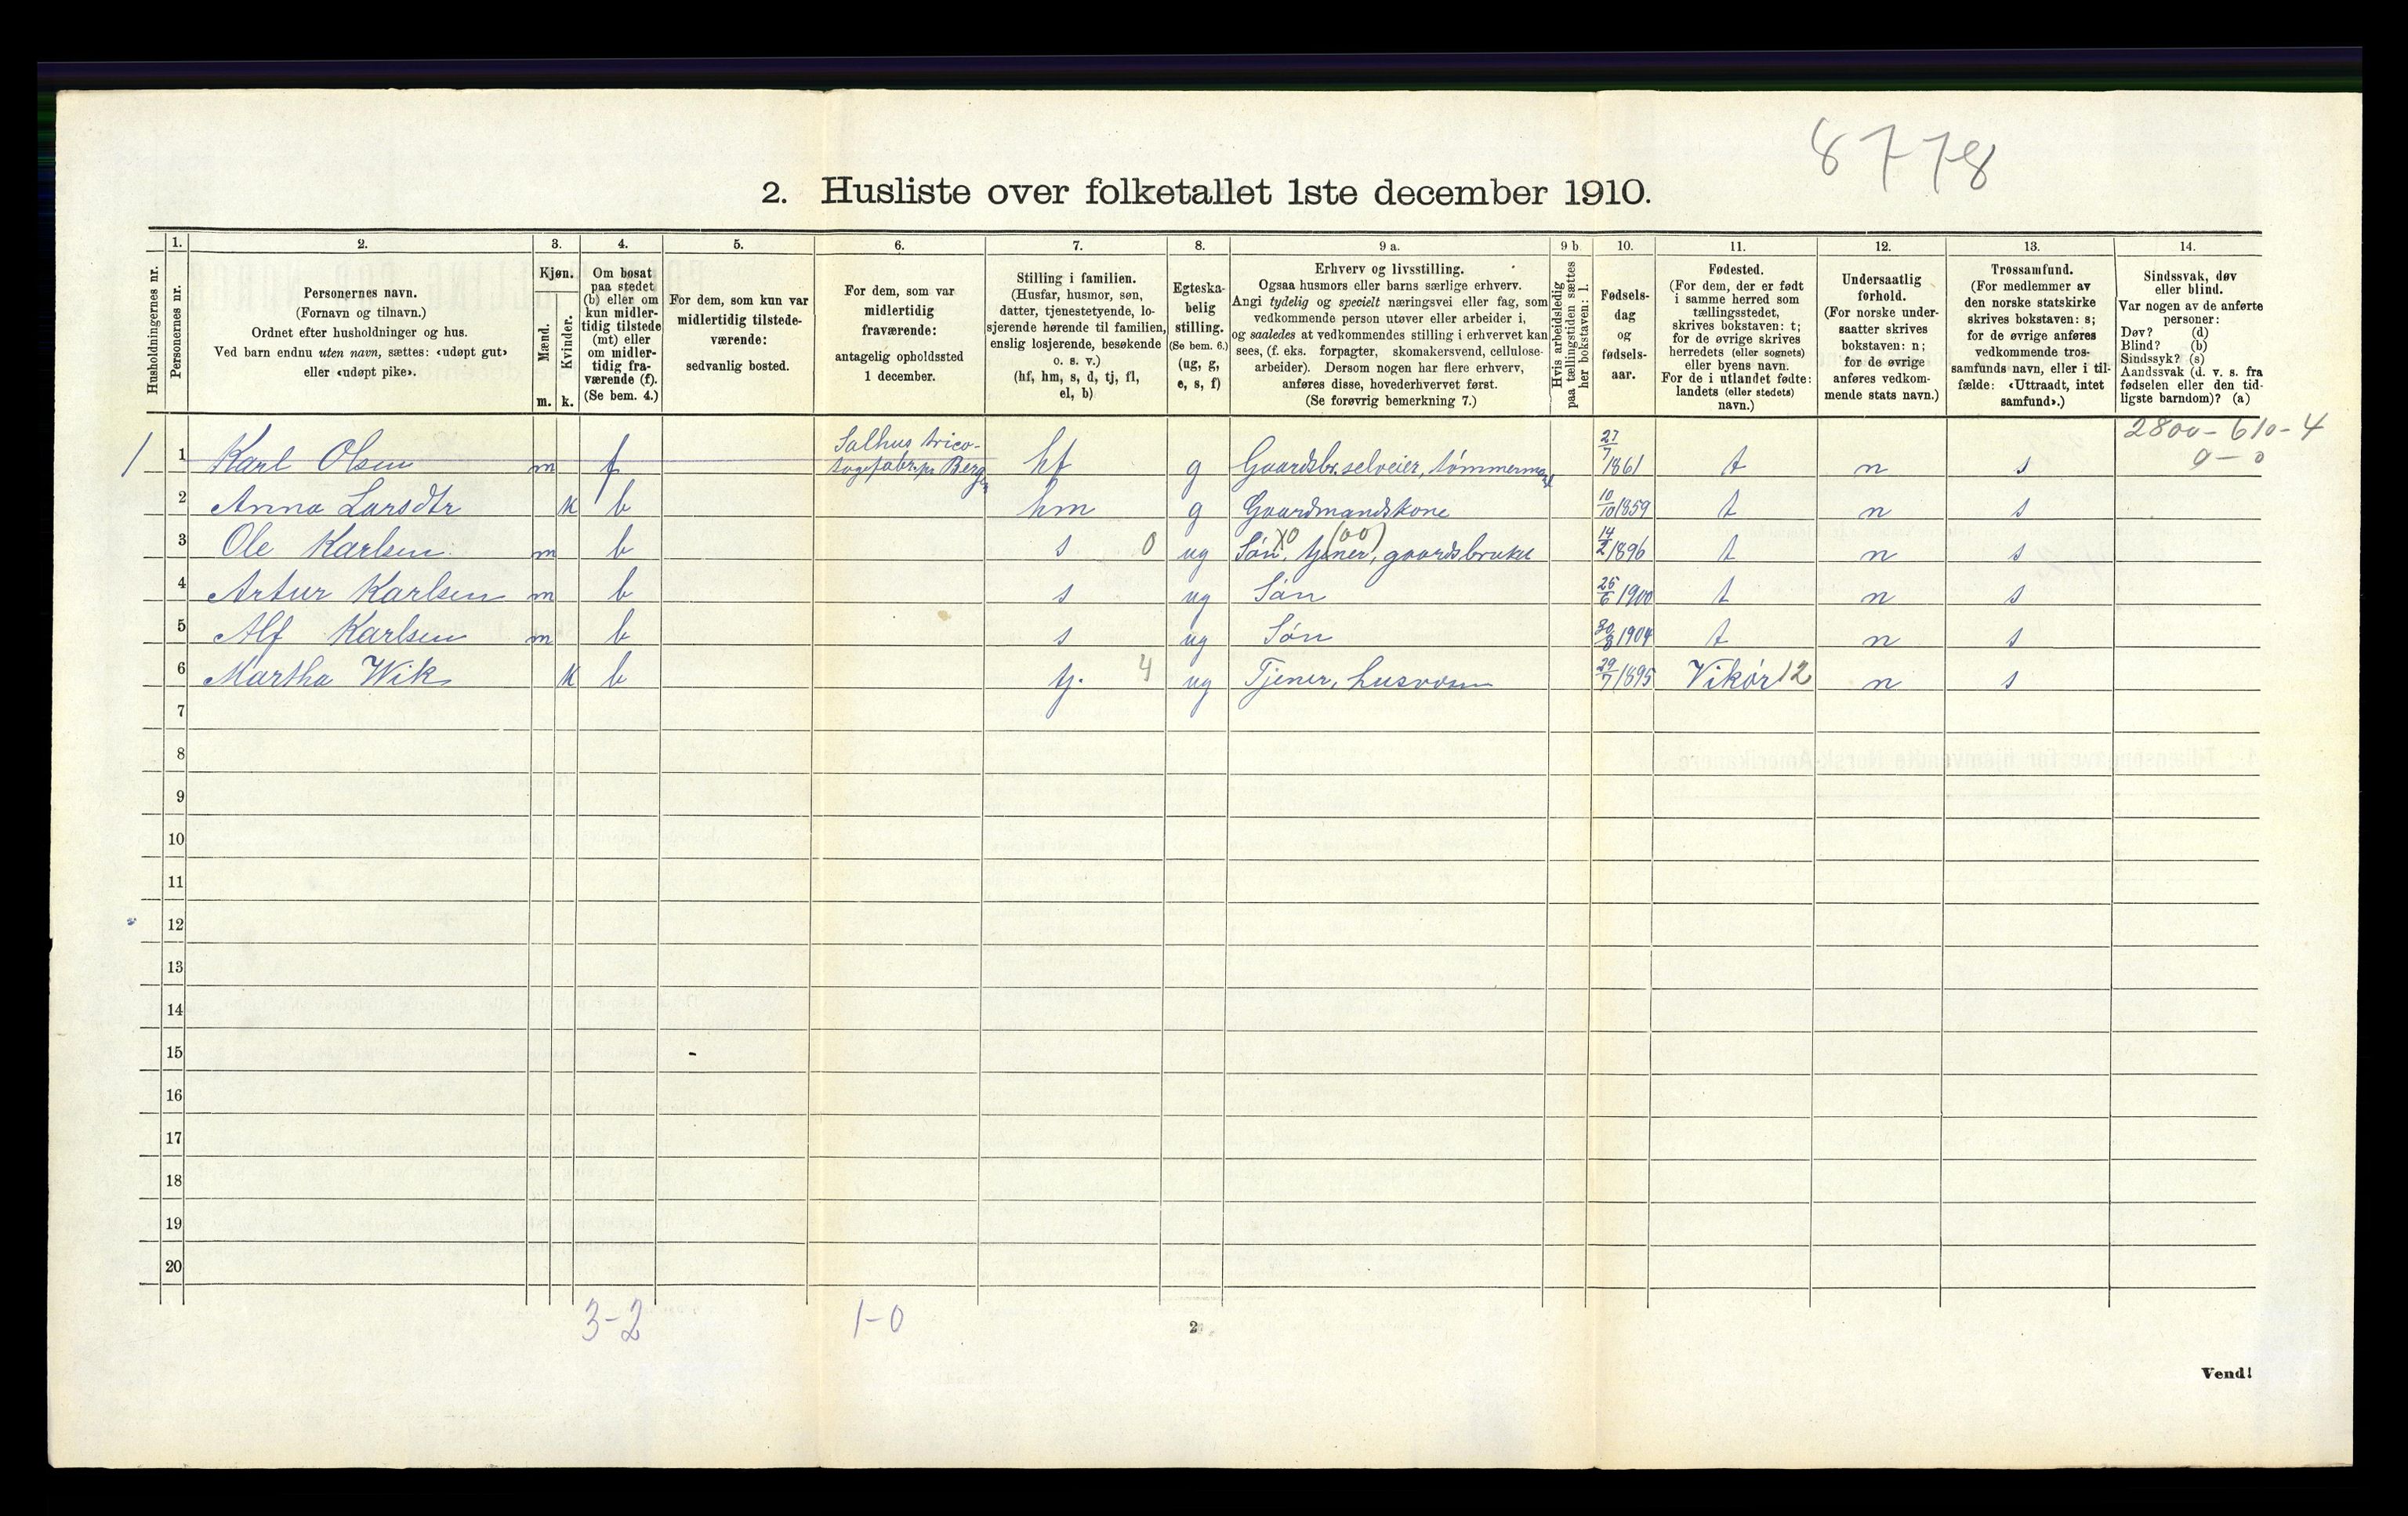 8778
2. Husliste over folketallet 1ste december 1910.
1. 2. 3. 4. 5. 6. 7. 8. 9 a. 9 b. 10. 11. 12. 13. 14.
Husholdningernes nr.
Personernes nr.
Personernes navn.
(Fornavn og tilnavn.)
Ordnet efter husholdninger og hus.
Ved barn endnu uten navn, sættes: «udøpt gut»
eller «udøpt pike».
Kjøn.
Mænd.
Kvinder.
m. k.
Om bosat
paa stedet
(b) eller om
kun midler-
tidig tilstede
(mt) eller
om midler-
tidig fra-
værende (f).
(Se bem. 4.)
For dem, som kun var
midlertidig tilstede-
værende:
sedvanlig bosted.
For dem, som var
midlertidig
fraværende:
antagelig opholdssted
1 december.
Stilling i familien.
(Husfar, husmor, søn,
datter, tjenestetyende, lo-
sjerende hørende til familien,
enslig losjerende, besøkende
o. s. v.)
(hf, hm, s, d, tj, fl,
el, b)
Egteska-
belig
stilling.
(Se bem. 6.)
(ug, g,
e, s, f)
Erhverv og livsstilling.
Ogsaa husmors eller barns særlige erhverv.
Angi tydelig og specielt næringsvei eller fag, som
vedkommende person utøver eller arbeider i,
og saaledes at vedkommendes stilling i erhvervet kan
sees, (f. eks. forpagter, skomakersvend, cellulose-
arbeider). Dersom nogen har flere erhverv,
anføres disse, hovederhvervet først.
(Se forøvrig bemerkning 7.)
Hvis arbeidsledig
paa tællingstiden sættes
her bokstaven: l.
Fødsels-
dag
og
fødsels-
aar.
Fødested.
(For dem, der er født
i samme herred som
tællingsstedet,
skrives bokstaven: t;
for de øvrige skrives
herredets (eller sognets)
eller byens navn.
For de i utlandet fødte:
landets (eller stedets)
navn.)
Undersaatlig
forhold.
(For norske under-
saatter skrives
bokstaven: n;
for de øvrige
anføres vedkom-
mende stats navn.)
Trossamfund.
(For medlemmer av
den norske statskirke
skrives bokstaven: s;
for de øvrige anføres
vedkommende tros-
samfunds navn, eller i til-
fælde: «Uttraadt, intet
samfund».)
Sindssvak, døv
eller blind.
Var nogen av de anførte
personer:
Døv? (d)
Blind? (b)
Sindssyk? (s)
Aandssvak (d. v. s. fra
fødselen eller den tid-
ligste barndom)? (a)
2800-610-4
0-0
1 1 Karl Olsen m f Salhus trico-
tagefabr. pr Bergen hf g Gaardbr. selveier, tømmermand 27/7 1861 t n s
2 Anna Larsdtr k b hm g Gaardmandskone 10/10 1859 t n s
3 Ole Karlsen m b s 0 ug Søn, X0 tjener, (00) gaardsbruket 14/2 1896 t n s
4 Artur Karlsen m b s ug Søn 25/6 1900 t n s
5 Alf Karlsen m b s ug Søn 30/8 1904 t n s
6 Martha Wik k b tj. 4 ug Tjener, husvæsen 29/7 1895 Vikør 12 n s
7
8
9
10
11
12
13
14
15
16
17
18
19
20
3-2 1-0
2
Vend!